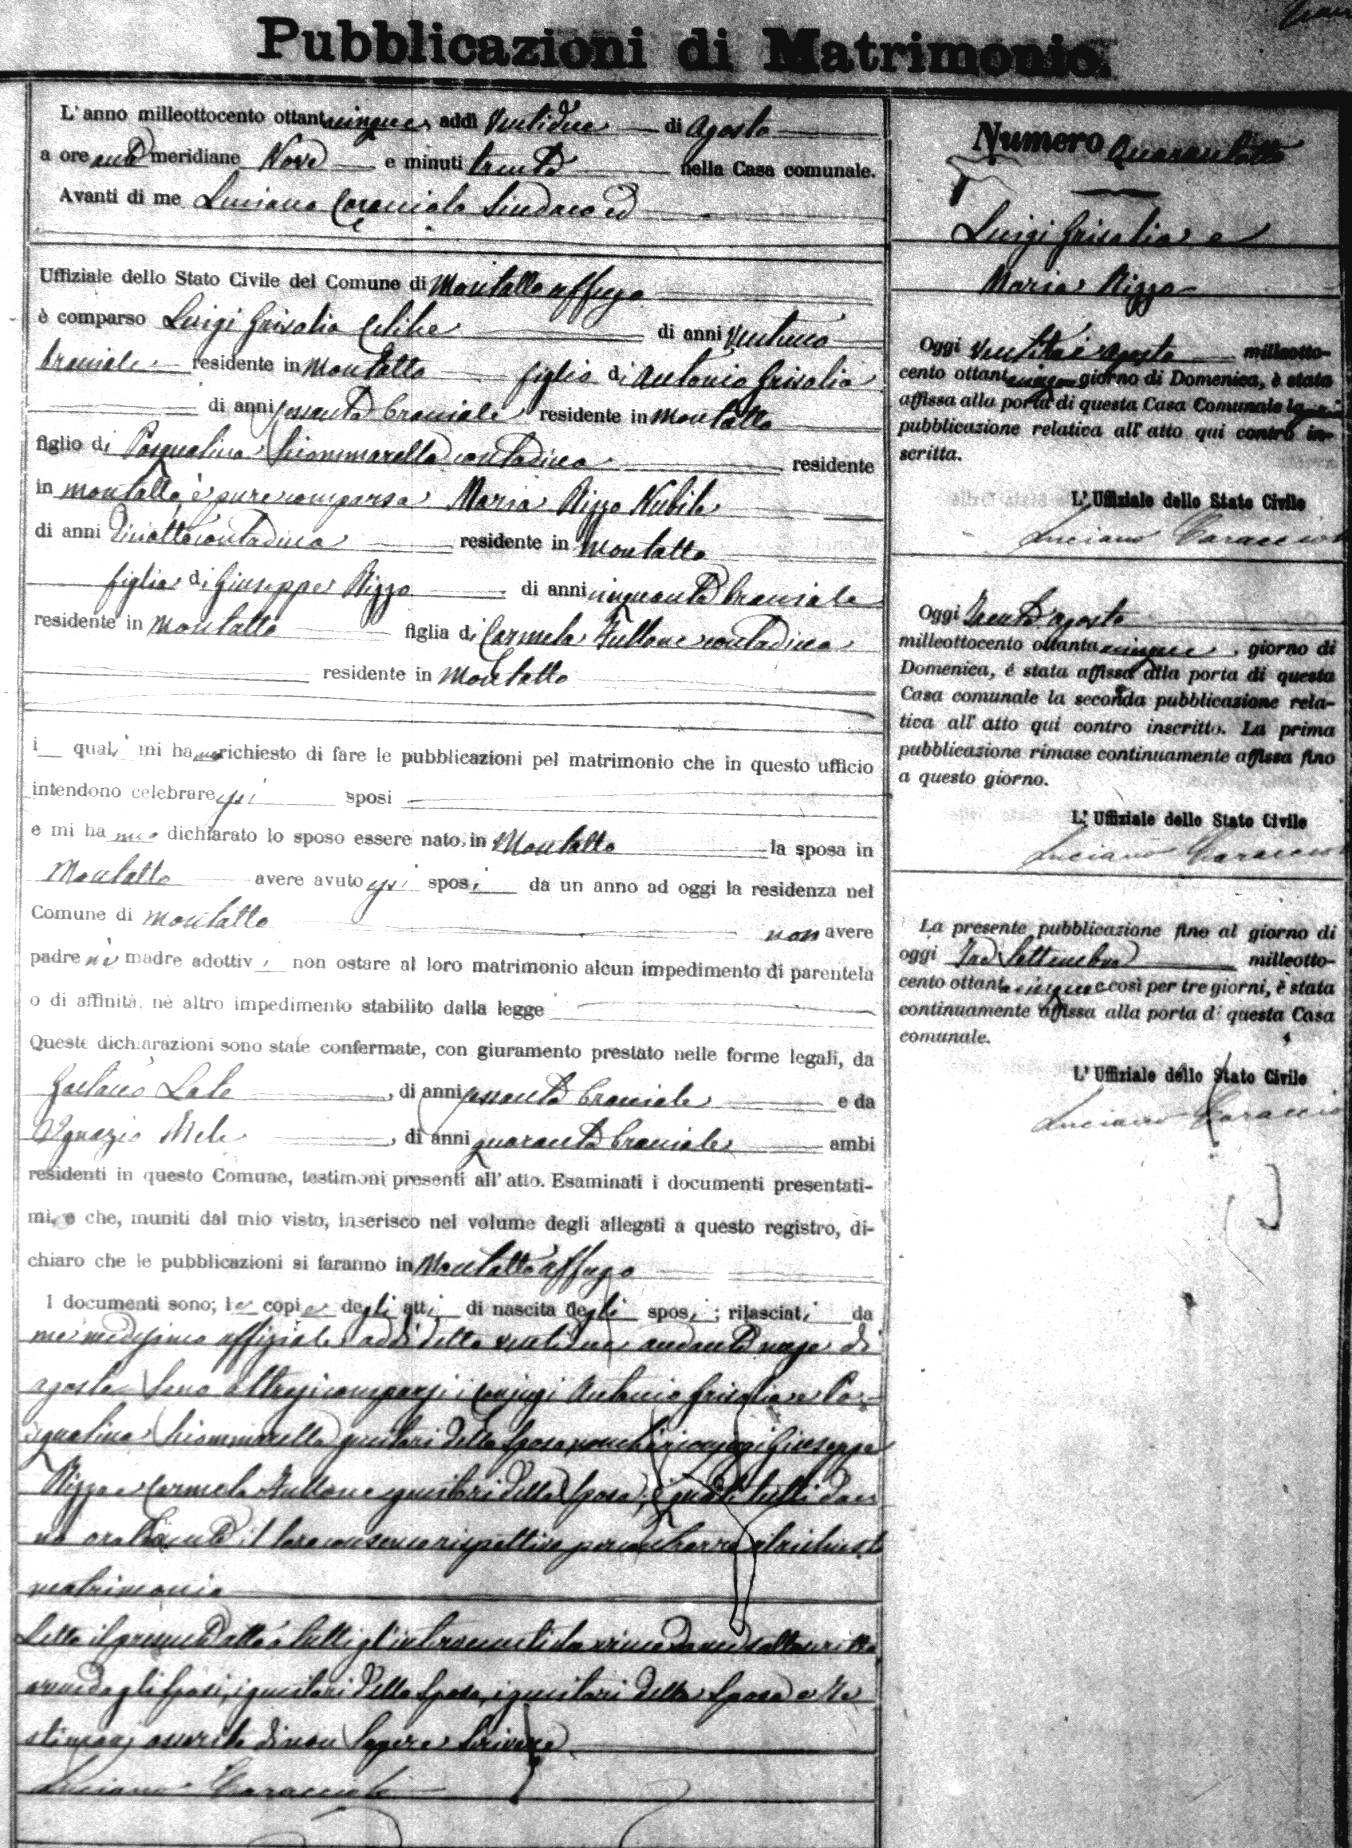 Pubblicazioni di Matrimonio.
L'anno milleottocento ottantacinque, addì ventidue di Agosto
a ore anti meridiane Nove e minuti trenta nella Casa comunale.
Avanti di me Luciano Caracciolo Sindaco ed
Uffiziale dello Stato Civile del Comune di Montalto Uffugo
è comparso Luigi Grisolia celibe di anni ventuno
bracciale residente in Montalto figlio di Antonio Grisolia
di anni sessanta bracciale residente in Montalto
figlio di Pasqualina Sciammarella contadina residente
in Montalto, è pure comparsa Maria Rizzo Nubile
di anni Diciotto contadina residente in Montalto
figlia di Giuseppe Rizzo di anni cinquanta bracciale
residente in Montalto figlia di Carmela Fullone contadina
residente in Montalto
i quali mi hanno richiesto di fare le pubblicazioni pel matrimonio che in questo ufficio
intendono celebrare essi sposi
e mi hanno dichiarato lo sposo essere nato in Montalto la sposa in
Montalto avere avuto essi sposi da un anno ad oggi la residenza nel
Comune di Montalto non avere
padre nè madre adottivi non ostare al loro matrimonio alcun impedimento di parentela
o di affinità, nè altro impedimento stabilito dalla legge
Queste dichiarazioni sono state confermate, con giuramento prestato nelle forme legali, da
Gaetano di anni sessanta bracciale e da
Ignazio Mele, di anni quaranta bracciale ambi
residenti in questo Comune, testimoni presenti all'atto. Esaminati i documenti presentati-
mi, e che, muniti dal mio visto, inserisco nel volume degli allegati a questo registro, di-
chiaro che le pubblicazioni si faranno in Montalto Uffugo
I documenti sono; le copie degli atti di nascita degli sposi; rilasciati da
me medesimo uffiziale addì detto ventidue andante mese di
agosto. Sono altresì comparsi i conjugi Antonio Grisolia e Pa-
squalina Sciammarella genitori dello sposo, nonchè i conjugi Giuseppe
Rizzo e Carmela Fullone genitori della sposa, i quali tutti dan
no oralmente il loro consenso rispettivo per contrarre il richiesto
matrimonio
Letto il presente atto a tutti gl'intervenuti da me sottoscritto
avendo gli sposi, i genitori dello sposo, i genitori della sposa e te
stimoni asserito di non sapere scrivere
Luciano Caracciolo
Numero Quarantotto
Luigi Grisolia e
Maria Rizzo
Oggi ventitrè Agosto milleotto-
cento ottantacinque giorno di Domenica, è stata
affissa alla porta di questa Casa Comunale la prima
pubblicazione relativa all'atto qui contro in-
scritta.
L'Uffiziale dello Stato Civile
Luciano Caracciolo
Oggi Trenta agosto
milleottocento ottantacinque, giorno di
Domenica, è stata affissa alla porta di questa
Casa comunale la seconda pubblicazione rela-
tiva all'atto qui contro inscritto. La prima
pubblicazione rimase continuamente affissa fino
a questo giorno.
L'Uffiziale dello Stato Civile
Luciano Caracciolo
La presente pubblicazione fino al giorno di
oggi Tre Settembre milleotto-
cento ottantacinque e così per tre giorni, è stata
continuamente affissa alla porta di questa Casa
comunale.
L'Uffiziale dello Stato Civile
Luciano Caracciolo